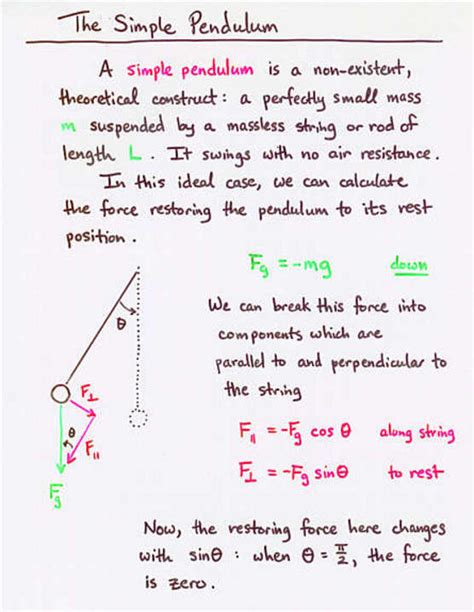 The Simple Pendulum
A simple pendulum is a non-existent,
theoretical construct: a perfectly small mass
m suspended by a massless string or rod of
length L. It swings with no air resistance.
In this ideal case, we can calculate
the force restoring the pendulum to its rest
position.
Fg = -mg down
We can break this force into
components which are
parallel to and perpendicular to
the string
F∥ = -Fg cos θ along string
F⊥ = -Fg sinθ to rest
θ
F⊥
θ
F∥
Fg
Now, the restoring force here changes
with sinθ : when θ = π/2, the force
is zero.